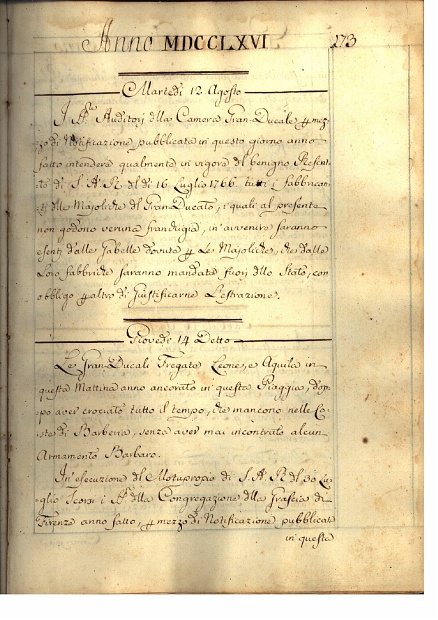 Anno MDCCLXVI 273
Martedì 12 Agosto
I SS.ri Auditori dlla Camera Gran-Ducale p mez,
zo di Notificazione pubblicata in questo giorno anno
fatto intendere qualmente in vigore dl benigno Rescrit
to di S. A. R. dl dì 16. Luglio 1766. tutti i fabbrican
ti dlle Majoliche dl Gran-Ducato, i quali al presente
non godono veruna franchigia, in avvenire saranno
esenti dalle Gabelle dovute p Le Majoliche, che dalle
Loro fabbriche saranno mandate fuori dllo Stato, con
obbligo p altro di Giustificarne L'estrazione.
Giovedì 14 Detto
Le Gran-Ducali Fregate Leone, e Aquila in
questa Mattina anno ancorato in questa Piaggia, dop,
po aver crociato tutto il tempo, che mancono nelle Co
ste di Barberia, senza aver mai incontrato alcun
Armamento Barbaro.
In esecuzione dl Motuproprio di S. A. R. dl 30 Lu,
glio Scorso i SS.ri dlla Congregazione dlla Grascia di
Firenze anno fatto, p mezzo di Notificazione pubblicata
in questa